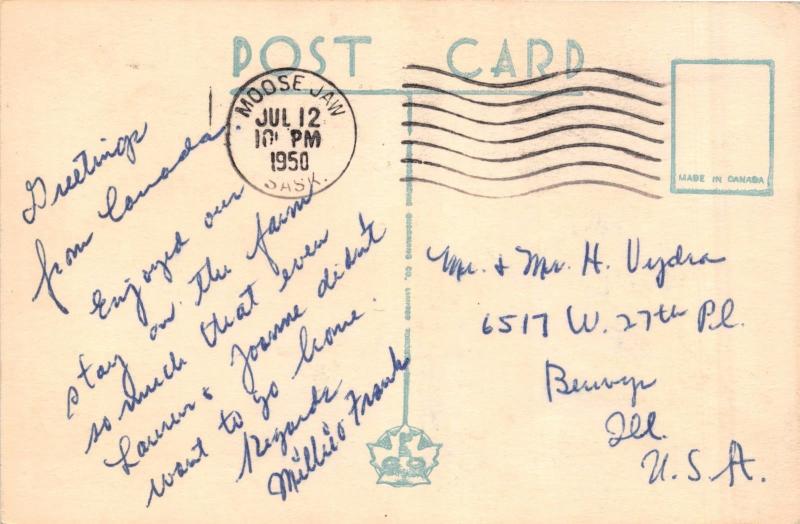 POST CARD
MOOSE JAW
JUL 12
PM
1950
SASK.
MADE IN CANADA
Greetings
from Canada
Enjoyed our
stay on the farm
so much that even
Lauren & Joanne didn't
want to go home.
Regards
Millie & Frank
Mr. & Mr. H. Vydra
6517 W. 27th Pl.
Berwyn
Ill.
U.S.A.